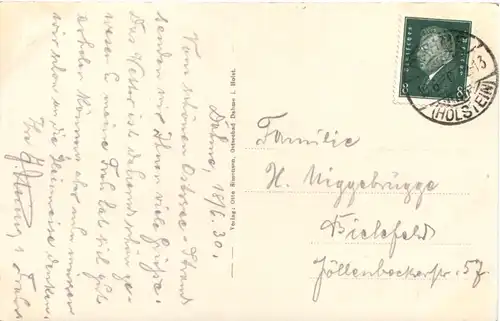 Dahme, 18/6.30.
Vom schönen Ostsee-Strand
senden wir Ihnen viele Grüße.
Das Wetter ist dauernd schön ge-
wesen u meine Frau hat sich gut
erholen können aber nun müssen
wir schon an die Heimreise denken.
Ihr u. Frau
Verlag: Otto Ostseebad Dahme i. Holst.
Deutsches Reich
8 8
(HOLSTEIN)
Familie
H. Niggebrügge
Bielefeld
Jöllenbeckerstr. 57